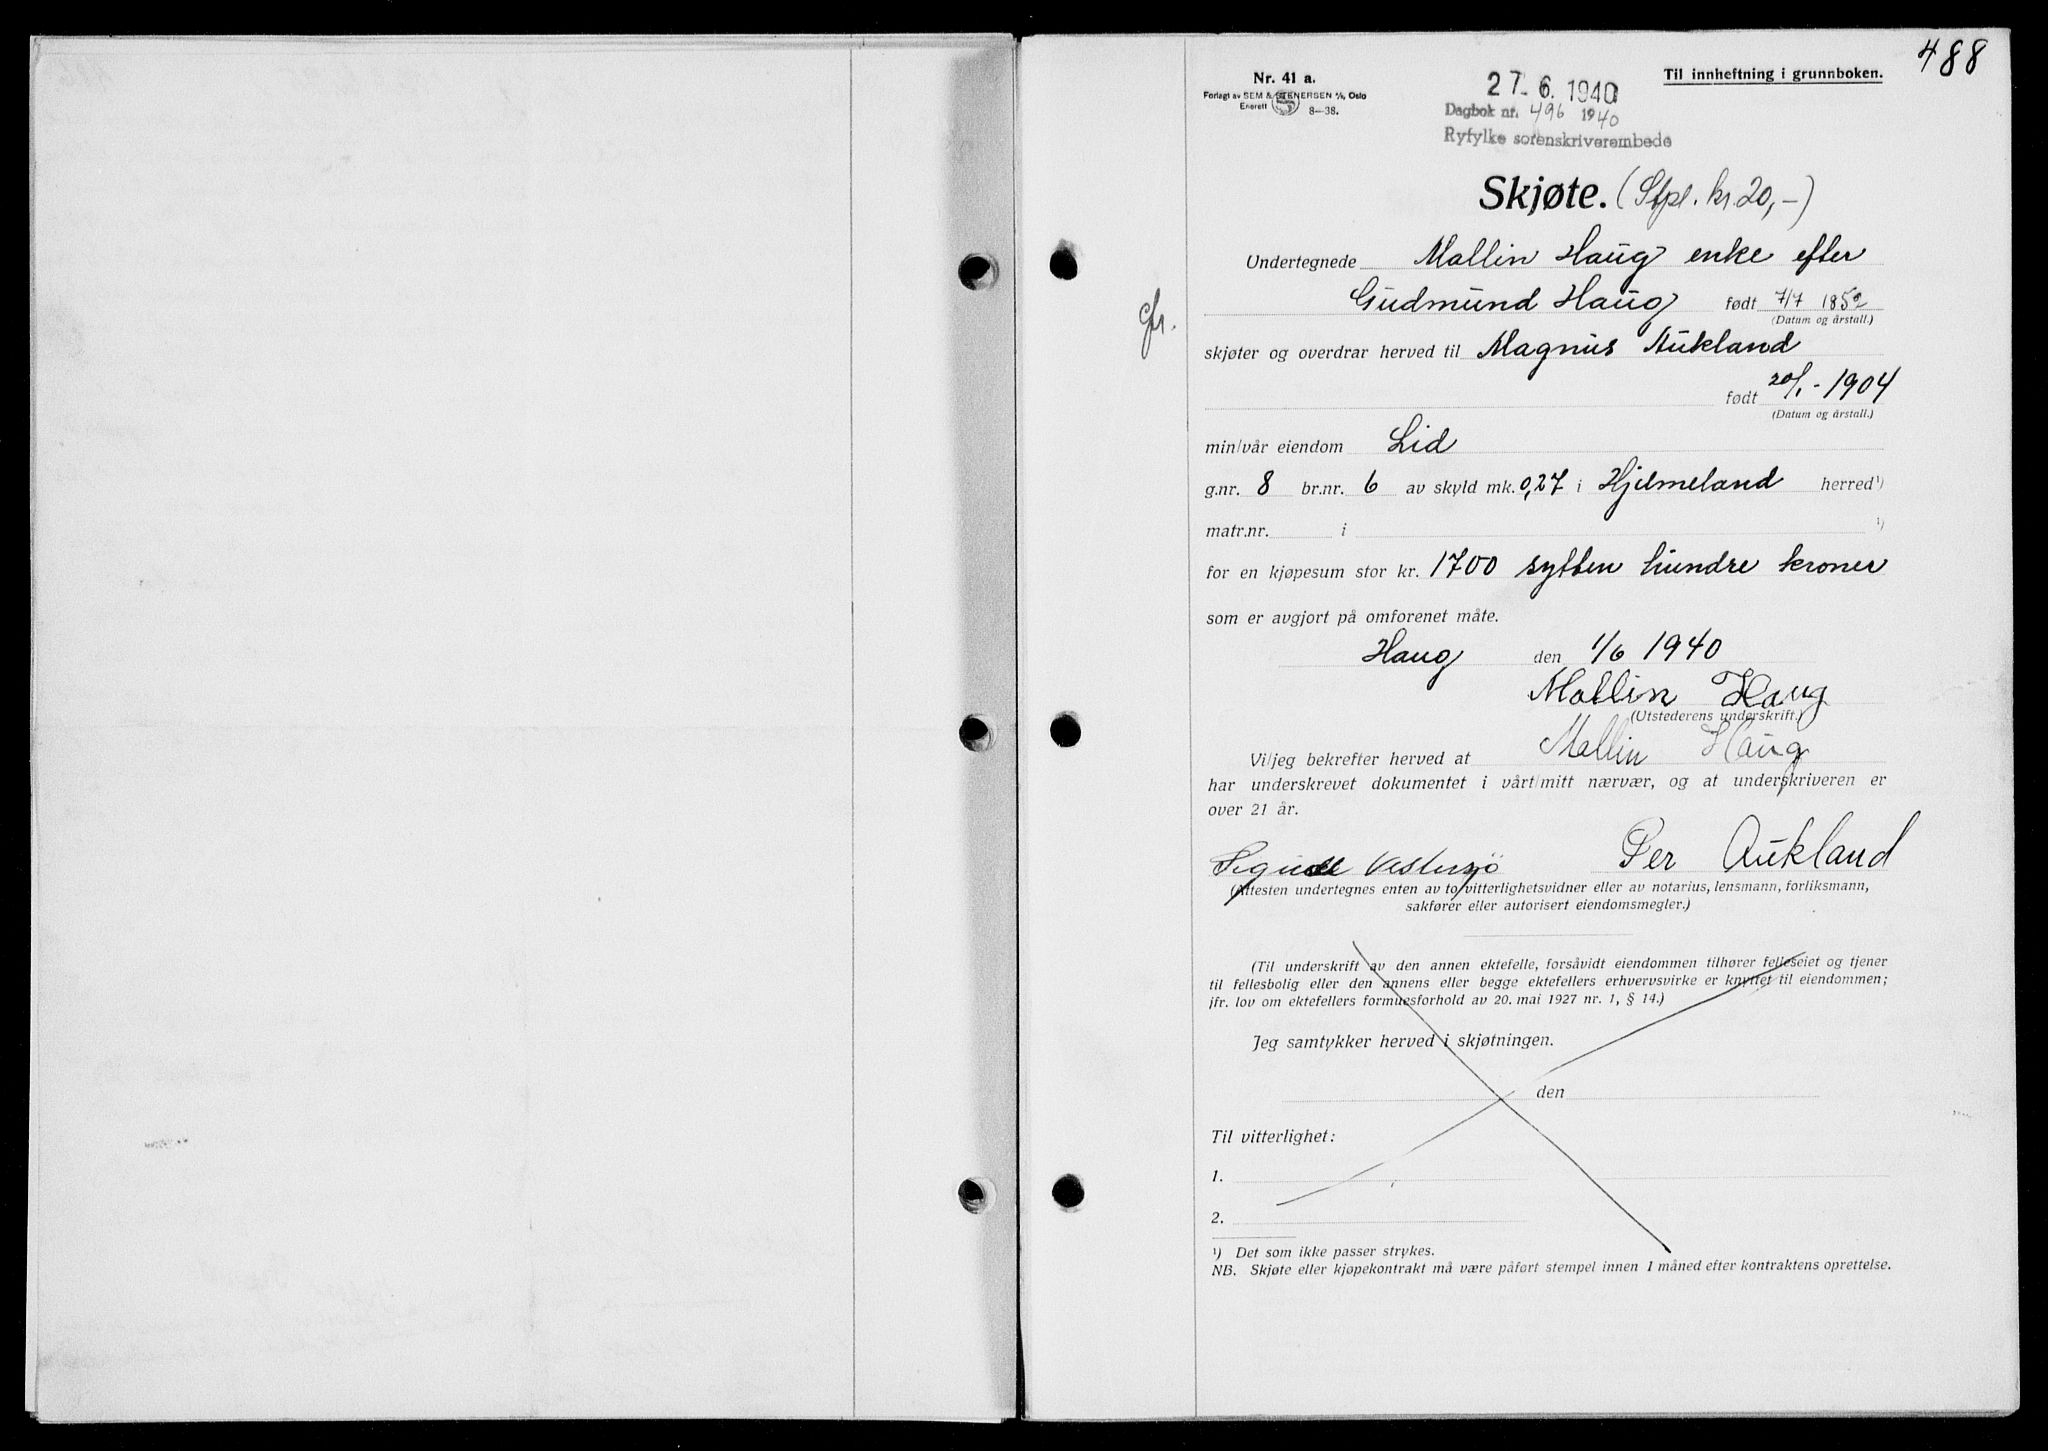 488
Nr. 41 a.
Forlagt av SEM & STENERSEN A/S, Oslo
Enerett 8—38.
Til innheftning i grunnboken.
27. 6. 1940
Dagbok nr. 496 1940
Ryfylke sorenskriverembede
Skjøte. (Stpl. kr. 20,-)
Undertegnede Mallin Haug enke efter
Gudmund Haug født 7/7 1852
(Datum og årstall.)
cfr.
skjøter og overdrar herved til Magnus Aukland
født 20/1-1904
(Datum og årstall.)
min/vår eiendom Lid
g.nr. 8 br.nr. 6 av skyld mk. 0,27 i Hjelmeland herred¹)
matr.nr. i ¹)
for en kjøpesum stor kr. 1700 sytten hundre kroner
som er avgjort på omforenet måte.
Haug den 1/6 1940
Mallin Haug
(Utstederens underskrift.)
Vi/jeg bekrefter herved at Mallin Haug
har underskrevet dokumentet i vårt/mitt nærvær, og at underskriveren er
over 21 år.
Vestersjö Per Aukland
(Attesten undertegnes enten av to vitterlighetsvidner eller av notarius, lensmann, forliksmann,
sakfører eller autorisert eiendomsmegler.)
(Til underskrift av den annen ektefelle, forsåvidt eiendommen tilhører felleseiet og tjener
til fellesbolig eller den annens eller begge ektefellers erhvervsvirke er knyttet til eiendommen;
jfr. lov om ektefellers formuesforhold av 20. mai 1927 nr. 1, § 14.)
Jeg samtykker herved i skjøtningen.
den
Til vitterlighet:
1.
2.
¹) Det som ikke passer strykes.
NB. Skjøte eller kjøpekontrakt må være påført stempel innen 1 måned efter kontraktens oprettelse.